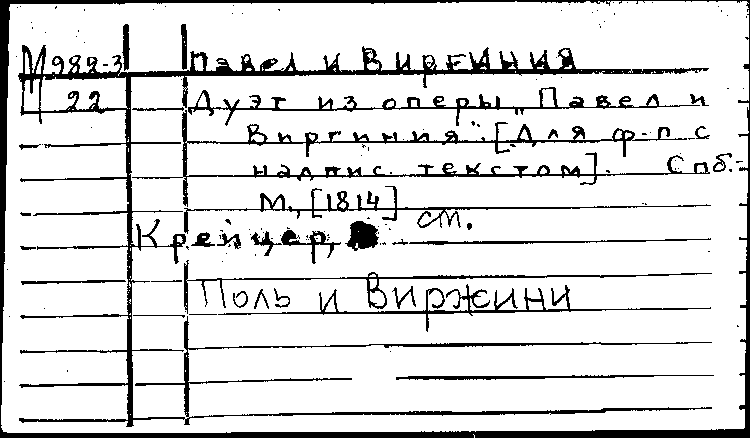 М 982-3 Павел и Виргиния
22 Дуэт из оперы „Павел и
Виргиния". [Для ф-п с
надпис. текстом]. Спб.-
М., [1814]
Крейцер, см.
Поль и Виржини